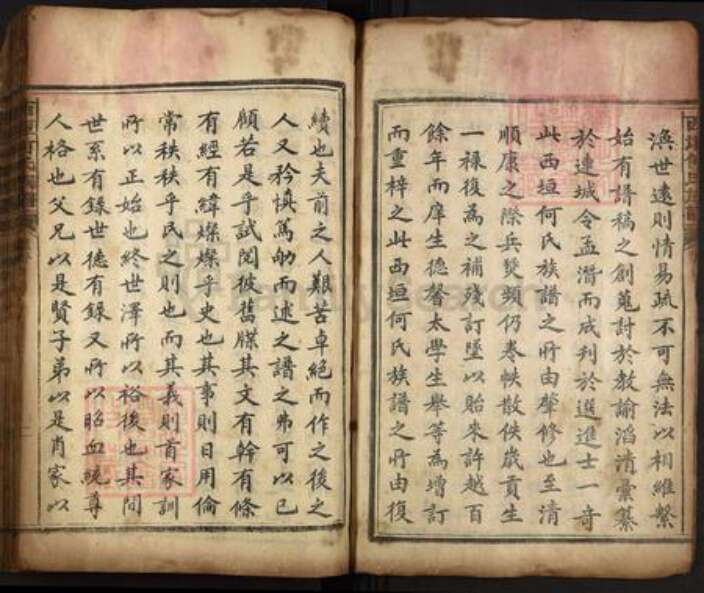 渙世遠則情易疏不可無法以相維繫
始有譜稿之創蒐討於教諭滔清彙纂
於連城令孟潛而成刊於選進士一奇
此西垣何氏族譜之所由肇修也至清
順康之際兵燹頻仍卷帙散佚歲貢生
一祿復為之補殘訂墜以貽來許越百
餘年而庠生德馨太學生舉等為增訂
而重梓之此西垣何氏族譜之所由復
續也夫前之人艱苦卓絕而作之後之
人又矜慎篤劬而述之譜之弗可以已
顧若是乎試閱彼舊牒其文有幹有條
有經有緯燦燦乎史也其事則日用倫
常秩秩乎民之則也而其義則首家訓
所以正始也終世澤所以裕後也其間
世系有錄世德有錄又所以昭血統尊
人格也父兄以是賢子弟以是肖家以